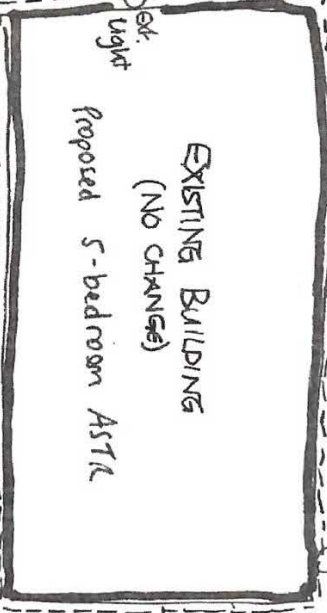 EXISTING BUILDING
(NO CHANGE)
Proposed 5-bedroom ASTR
ext.
light